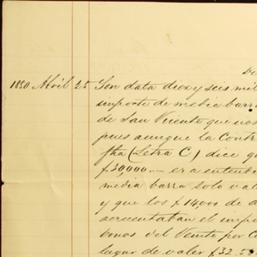 De
1890 Abril 25 Son data diez y seis mil
importe de media barra
de San Vicente que nos
pues aunque la Contr
fha (Letra C) dice q
£30,000 — era entend
media barra solo val
y que los £14000 de a
bonos del Vicente por C
lugar de valer £32.5